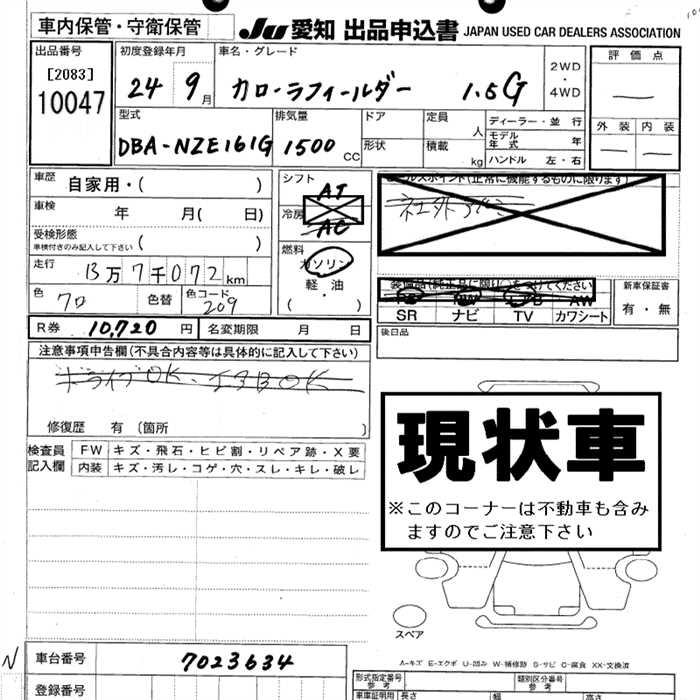 車内保管・守衛保管
JU 愛知 出品申込書 JAPAN USED CAR DEALERS ASSOCIATION
出品番号
[2083]
10047
初度登録年月
24 9月
車名・グレード
カローラフィールダー 1.5G
2WD
・
4WD
評価点
外装 内装
型式
DBA-NZE161G
排気量
1500 CC
ドア
形状
定員 人
積載 kg
ディーラー・並行
モデル年式 年
ハンドル 左・右
車歴 自家用・( )
車検 年 月( 日)
受検形態
車検付きのみ記入して下さい ( )
走行 13万7千072km
色 クロ 色替 色コード 209
シフト
AT
冷房
AC
燃料
ガソリン
軽・油
( ・ )
ルスポイント(正常に機能するものに限ります)
装備品(純正品に限り)○をつけてください
AW
SR ナビ TV カワシート
新車保証書
有・無
R券 10,720 円 名変期限 月 日
後日品
注意事項申告欄(不具合内容等は具体的に記入して下さい)
ドライブOK、エアBOK
修復歴 有 〔箇所 〕
検査員記入欄
FW キズ・飛石・ヒビ割・リペア跡・X要
内装 キズ・汚レ・コゲ・穴・スレ・キレ・破レ
現状車
※このコーナーは不動車も含み
ますのでご注意下さい
スペア
A-キズ E-エクボ U-凹み W-補修跡 S-サビ C-腐食 XX-交換済
N
車台番号 7023634
登録番号
形式指定番号
参考
類別区分番号
参考
車庫証明用 長さ 幅 高さ